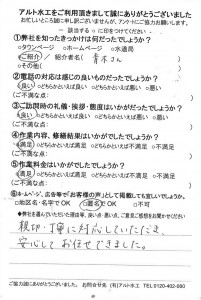 アルト水工をご利用頂きまして誠にありがとうございました
お忙しいところ誠に申し訳ございませんが、アンケートにご協力お願いします。
－ 該当する○に印をつけてください －
①弊社を知ったきっかけは何だったでしょうか?
○タウンページ ○ホームページ ○水道局
○ご紹介 紹介者名( 青木さん
○その他(
②電話の対応は感じの良いものだったでしょうか?
○良い ○どちらかといえば良い ○どちらかといえば悪い ○悪い
不満な点:
③ご訪問時の礼儀・挨拶・態度はいかがだったでしょうか?
○良い ○どちらかといえば良い ○どちらかといえば悪い ○悪い
ご不満な点:
④作業内容、修繕結果はいかがでしたでしょうか?
○満足 ○どちらかといえば満足 ○どちらかといえば不満 ○不満
ご不満な点:
⑤作業料金はいかがでしたでしょうか?
○満足 ○どちらかといえば満足 ○どちらかといえば不満 ○不満
ご不満な点:
⑥ホームページ、広告等で「お客様の声」として掲載しても宜しいでしょうか。
○地区名・名字でOK ○匿名でOK ○不可
◆弊社を選んでいただいた理由等、良い点・悪い点、ご意見ご感想をお聞かせください
親切・丁寧に対応していただき、
安心してお任せできました。
ご協力誠にありがとうございました。 お問合せ先 (有)アルト水工 TEL0120-402-060